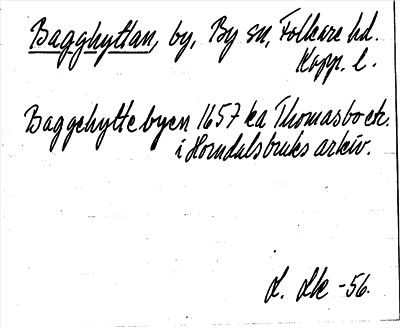 Bagghyttan, by, By sn, Folkare hd.
Kopp. l.
Baggehytte byen 1657 ka Thomasbo etc.
i Horndalsbruks arkiv.
L. Lk -56.